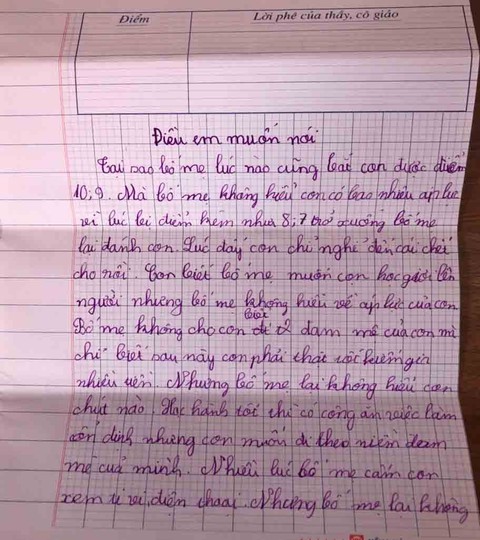 Điểm
Lời phê của thầy, cô giáo
Điều em muốn nói
Tại sao bố mẹ lúc nào cũng bắt con được điểm
10; 9. Mà bố mẹ không hiểu con có bao nhiêu áp lực
vì lúc bị điểm kém như 8; 7 trở xuống bố mẹ
lại đánh con. Lúc đấy con chỉ nghĩ đến cái chết
cho rồi. Con biết bố mẹ muốn con học giỏi lên
người nhưng bố mẹ không hiểu về áp lực của con
Bố mẹ không cho con biết đam mê của con mà
chỉ biết sau này con phải thật tốt kiếm
nhiều tiền. Nhưng bố mẹ lại không hiểu con
chút nào. Học hành tốt thì có công ăn việc làm
ổn định nhưng con muốn đi theo niềm đam
mê của mình. Nhiều lúc bố mẹ cấm con
xem ti vi, điện thoại. Nhưng bố mẹ lại không